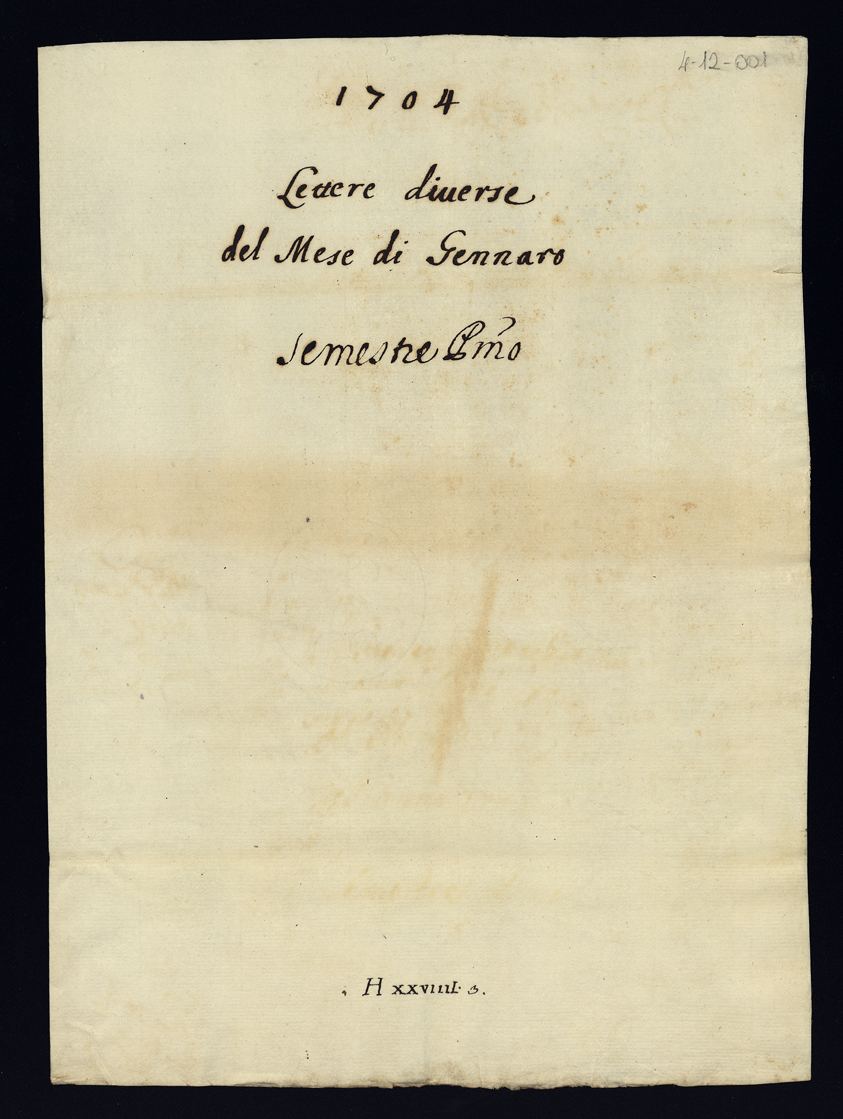 4-12-001
1704
Lettere diuerse
del Mese di Gennaro
semestre Pm̃o
H xxviiii. 3.